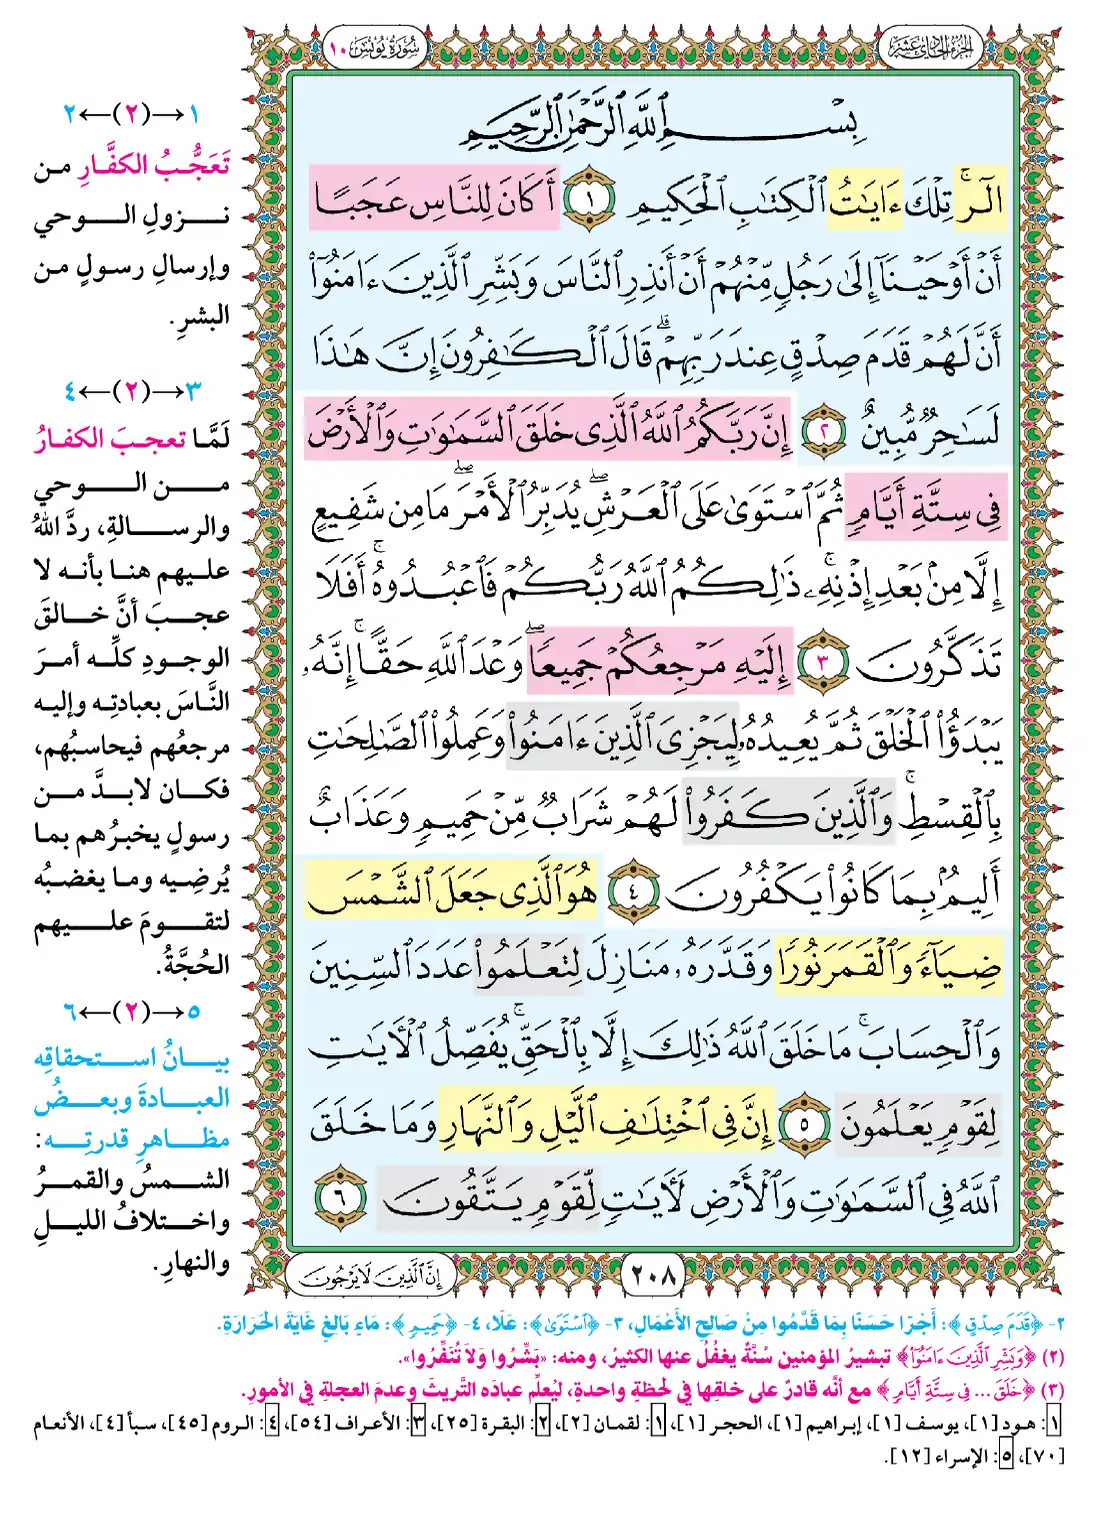 الجزء الحادي عشر
سورة يونس ١٠
بِسْمِ ٱللَّهِ ٱلرَّحْمَٰنِ ٱلرَّحِيمِ
الٓرۚ تِلْكَ ءَايَٰتُ ٱلْكِتَٰبِ ٱلْحَكِيمِ ١ أَكَانَ لِلنَّاسِ عَجَبًا
أَنْ أَوْحَيْنَآ إِلَىٰ رَجُلٍ مِّنْهُمْ أَنْ أَنذِرِ ٱلنَّاسَ وَبَشِّرِ ٱلَّذِينَ ءَامَنُوٓا۟
أَنَّ لَهُمْ قَدَمَ صِدْقٍ عِندَ رَبِّهِمْۗ قَالَ ٱلْكَٰفِرُونَ إِنَّ هَٰذَا
لَسَٰحِرٌ مُّبِينٌ ٢ إِنَّ رَبَّكُمُ ٱللَّهُ ٱلَّذِى خَلَقَ ٱلسَّمَٰوَٰتِ وَٱلْأَرْضَ
فِى سِتَّةِ أَيَّامٍ ثُمَّ ٱسْتَوَىٰ عَلَى ٱلْعَرْشِۖ يُدَبِّرُ ٱلْأَمْرَۖ مَا مِن شَفِيعٍ
إِلَّا مِنۢ بَعْدِ إِذْنِهِۦۚ ذَٰلِكُمُ ٱللَّهُ رَبُّكُمْ فَٱعْبُدُوهُۚ أَفَلَا
تَذَكَّرُونَ ٣ إِلَيْهِ مَرْجِعُكُمْ جَمِيعًاۖ وَعْدَ ٱللَّهِ حَقًّاۚ إِنَّهُۥ
يَبْدَؤُا۟ ٱلْخَلْقَ ثُمَّ يُعِيدُهُۥ لِيَجْزِىَ ٱلَّذِينَ ءَامَنُوا۟ وَعَمِلُوا۟ ٱلصَّٰلِحَٰتِ
بِٱلْقِسْطِۚ وَٱلَّذِينَ كَفَرُوا۟ لَهُمْ شَرَابٌ مِّنْ حَمِيمٍ وَعَذَابٌ
أَلِيمٌۢ بِمَا كَانُوا۟ يَكْفُرُونَ ٤ هُوَ ٱلَّذِى جَعَلَ ٱلشَّمْسَ
ضِيَآءً وَٱلْقَمَرَ نُورًا وَقَدَّرَهُۥ مَنَازِلَ لِتَعْلَمُوا۟ عَدَدَ ٱلسِّنِينَ
وَٱلْحِسَابَۚ مَا خَلَقَ ٱللَّهُ ذَٰلِكَ إِلَّا بِٱلْحَقِّۚ يُفَصِّلُ ٱلْءَايَٰتِ
لِقَوْمٍ يَعْلَمُونَ ٥ إِنَّ فِى ٱخْتِلَٰفِ ٱلَّيْلِ وَٱلنَّهَارِ وَمَا خَلَقَ
ٱللَّهُ فِى ٱلسَّمَٰوَٰتِ وَٱلْأَرْضِ لَءَايَٰتٍ لِّقَوْمٍ يَتَّقُونَ ٦
٢٠٨
إِنَّ ٱلَّذِينَ لَا يَرْجُونَ
١→(٢)←٢
تَعَجُّبُ الكفَّارِ من
نزولِ الوحي
وإرسالِ رسولٍ من
البشرِ.
٣→(٢)←٤
لَمَّا تعجبَ الكفارُ
من الوحي
والرسالةِ، ردَّ اللهُ
عليهم هنا بأنه لا
عجبَ أنَّ خالقَ
الوجودِ كلِّه أمرَ
النَّاسَ بعبادتِه وإليه
مرجعُهم فيحاسبُهم،
فكان لابدَّ من
رسولٍ يخبرُهم بما
يُرضِيه وما يغضبُه
لتقومَ عليهم
الحُجَّةُ.
٥→(٢)←٦
بيانُ استحقاقِه
العبادةَ وبعضُ
مظاهرِ قدرتِه:
الشمسُ والقمرُ
واختلافُ الليلِ
والنهارِ.
٢- ﴿قَدَمَ صِدْقٍ﴾: أَجْرًا حَسَنًا بِمَا قَدَّمُوا مِنْ صَالِحِ الأَعْمَالِ، ٣- ﴿ٱسْتَوَىٰ﴾: عَلَا، ٤- ﴿حَمِيمٍ﴾: مَاءٍ بَالِغٍ غَايَةَ الحَرَارَةِ.
(٢) ﴿وَبَشِّرِ ٱلَّذِينَ ءَامَنُوٓا۟﴾ تبشيرُ المؤمنين سُنَّةٌ يغفُلُ عنها الكثيرُ، ومنه: «بَشِّرُوا وَلاَ تُنَفِّرُوا».
(٣) ﴿خَلَقَ ... فِى سِتَّةِ أَيَّامٍ﴾ مع أنَّه قادرٌ على خلقِها في لحظةٍ واحدةٍ، ليُعلِّم عبادَه التَّريثَ وعدمَ العجلةِ في الأمورِ.
١: هود [١]، يوسف [١]، إبراهيم [١]، الحجر [١]، ١: لقمان [٢]، ٢: البقرة [٢٥]، ٣: الأعراف [٥٤]، ٤: الروم [٤٥]، سبأ [٤]، الأنعام
[٧٠]، ٥: الإسراء [١٢].